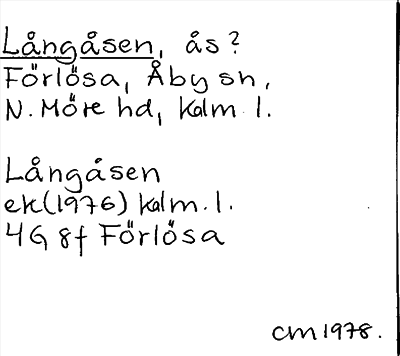 Långåsen, ås?
Förlösa, Åby sn,
N. Möre hd, Kalm. l.
Långåsen
ek (1976) Kalm. l.
4G 8f Förlösa
cm 1978.